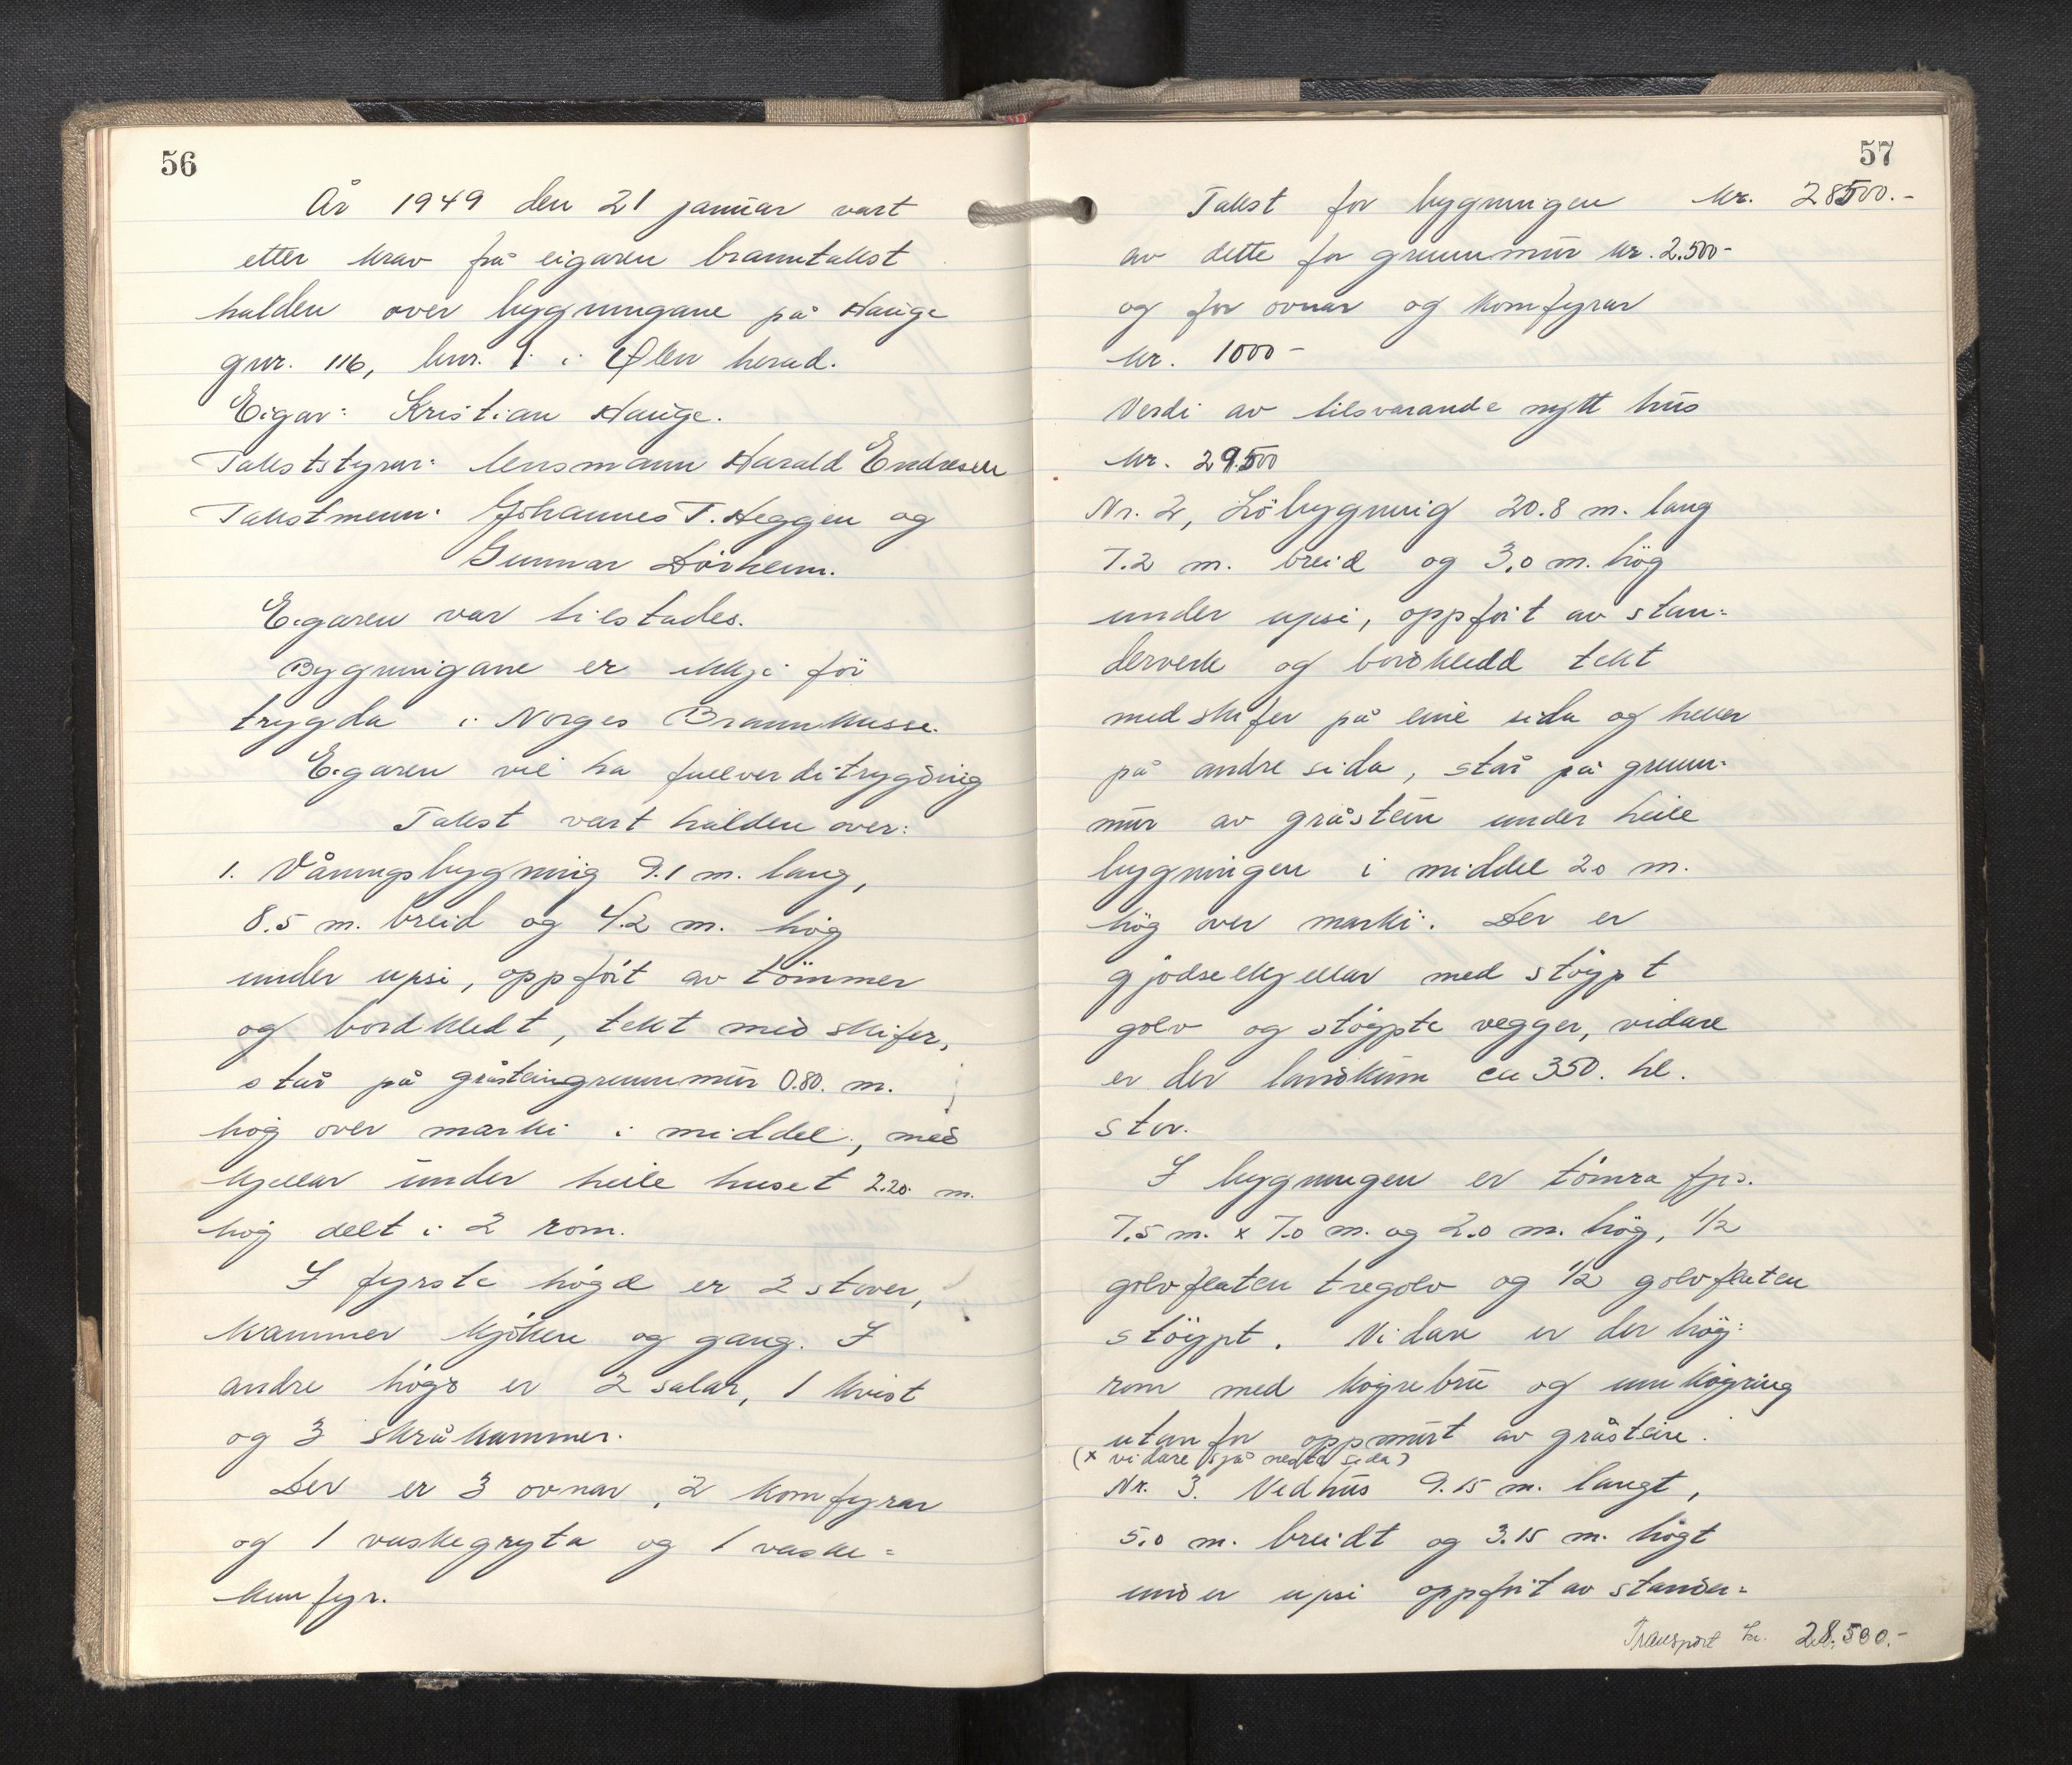 56
År 1949 den 21 januar vart
etter krav frå eigaren branntakst
halden over bygningane på Hauge
gnr. 116, bnr. 1 i Ølen herad.
Eigar: Kristian Hauge.
Takststyrar: lensmann Harald Endresen
Takstmenn: Johannes T. Heggen og
Gunnar Dörheim.
Eigaren var tilstades.
Bygningane er ikkje för
trygda i Norges Brannkasse.
Eigaren vil ha fullverditrygding
Takst vart halden over:
1. Våningsbygning 9.1 m. lang,
8.5 m. breid og 4.2 m. hög
under upsi, oppfört av tömmer
og bordkledt, tekt med skifer,
står på gråsteingrunnmur 0.80. m.
hög over marki i middel, med
kjellar under heile huset 2.20 m.
hög delt i 2 rom.
I fyrste högd er 2 stover,
kammer kjöken og gang. I
andre högd er 2 salar, 1 kvist
og 3 skråkammer.
Der er 3 ovnar, 2 komfyrar
og 1 vaskegryta og 1 vaske=
komfyr.
57
Takst for bygningen kr. 28500.-
av dette for grunnmur kr. 2.500-
og for ovnar og komfyrar
kr. 1000-
Verdi av tilsvarande nytt hus
kr. 29.500
Nr. 2, Löbygning 20.8 m. lang
7.2 m. breid og 3.0 m. hög
under upsi, oppfört av stan=
derverk og bordkledd tekt
med skifer på eine sida og heller
på andre sida, står på grunn=
mur av gråstein under heile
bygningen i middel 2.0 m.
hög over marki. Der er
gjödselkjellar med stöypt
golv og stöypte vegger, vidare
er der landkum ca 350. hl.
stor.
I bygningen er tömra fjös.
7.5 m. x 7.0 m. og 2.0 m. hög, 1/2
golvflaten tregolv og 1/2 golvflaten
stöypt. Vidare er der höy=
rom med köyrebru og innköyring
utanfor oppmurt av gråstein.
(x vidare sjå neste sida)
Nr. 3. Vedhus 9.15 m. langt,
5.0 m. breidt og 3.15 m. högt
under upsi oppfört av stander=
Transport kr. 28.500.-